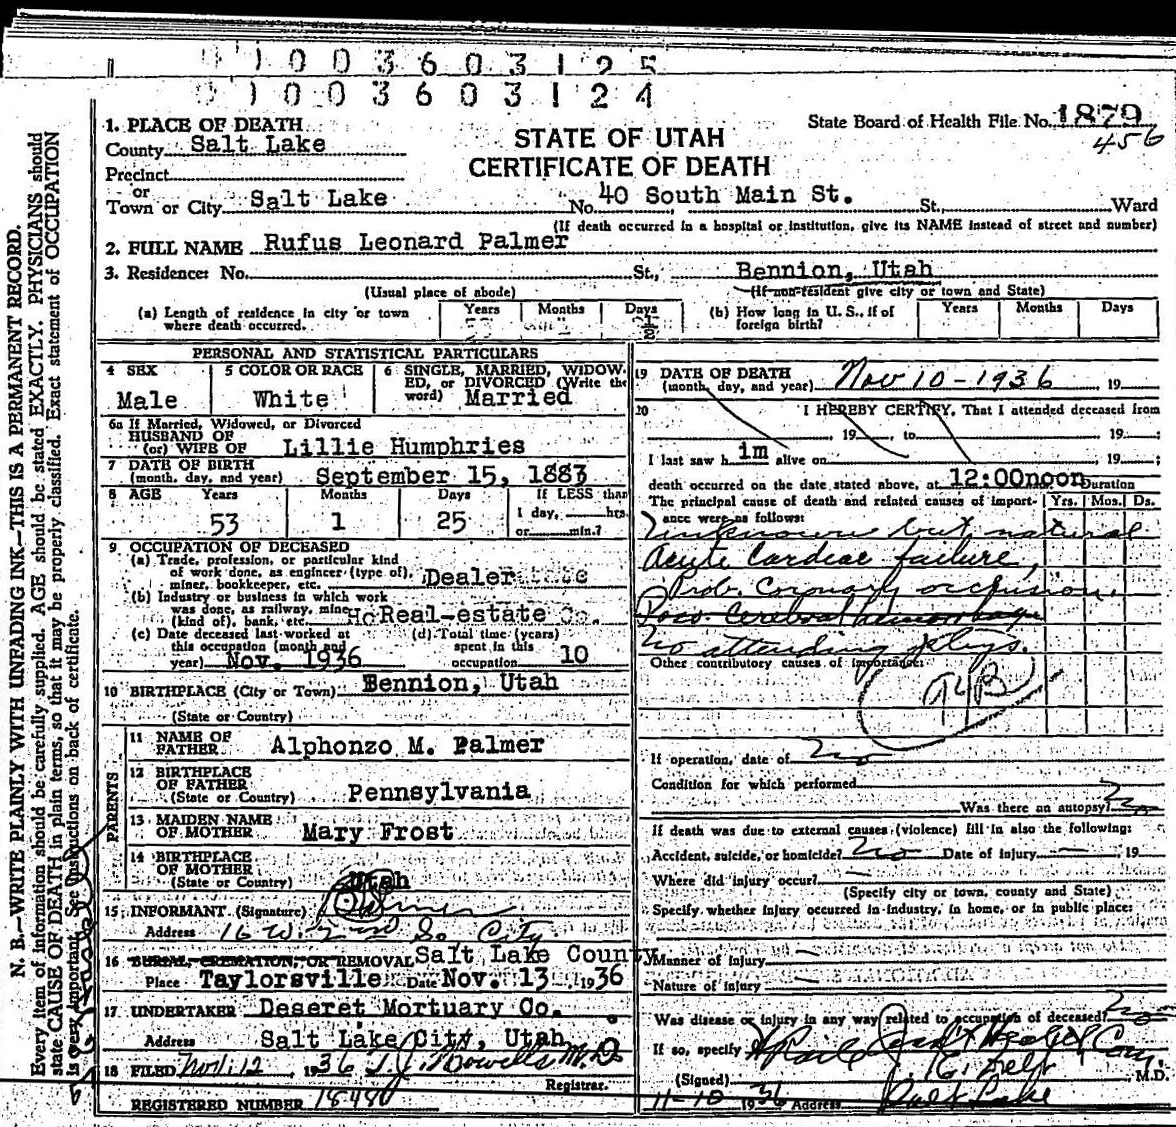 0 1 0 0 3 6 0 3 1 2 5
0 1 0 0 3 6 0 3 1 2 4
State Board of Health File No. 1879
456
STATE OF UTAH
CERTIFICATE OF DEATH
1. PLACE OF DEATH
County Salt Lake
Precinct
or
Town or City Salt Lake No. 40 South Main St. St., Ward
(If death occurred in a hospital or institution, give its NAME instead of street and number)
2. FULL NAME Rufus Leonard Palmer
3. Residence: No. St., Bennion, Utah
(Usual place of abode) (If non-resident give city or town and State)
(a) Length of residence in city or town where death occurred. Years Months Days
(b) How long in U. S., if of foreign birth? Years Months Days
PERSONAL AND STATISTICAL PARTICULARS
4 SEX Male
5 COLOR OR RACE White
6 SINGLE, MARRIED, WIDOWED, or DIVORCED (Write the word) Married
6a If Married, Widowed, or Divorced
HUSBAND OF
(or) WIFE OF Lillie Humphries
7 DATE OF BIRTH
(month, day, and year) September 15, 1883
8 AGE Years 53 Months 1 Days 25 If LESS than 1 day, hrs. or min.?
9 OCCUPATION OF DECEASED
(a) Trade, profession, or particular kind of work done, as engineer (type of), miner, bookkeeper, etc. Dealer
(b) Industry or business in which work was done, as railway, mine (kind of), bank, etc. Real-estate Co.
(c) Date deceased last worked at this occupation (month and year) Nov. 1936
(d) Total time (years) spent in this occupation 10
10 BIRTHPLACE (City or Town) Bennion, Utah
(State or Country)
PARENTS
11 NAME OF FATHER Alphonzo M. Palmer
12 BIRTHPLACE OF FATHER
(State or Country) Pennsylvania
13 MAIDEN NAME OF MOTHER Mary Frost
14 BIRTHPLACE OF MOTHER
(State or Country) Utah
15 INFORMANT (Signature)
Address 16 W. 2nd So. City.
16 BURIAL, CREMATION, OR REMOVAL Salt Lake County
Place Taylorsville Date Nov. 13 1936
17 UNDERTAKER Deseret Mortuary Co.
Address Salt Lake City, Utah
18 FILED Nov. 12 1936 T. J. Howells M.D.
Registrar.
REGISTERED NUMBER 18480
19 DATE OF DEATH
(month, day, and year) Nov 10-1936, 19
20 I HEREBY CERTIFY, That I attended deceased from
, 19 , to , 19 ;
I last saw him alive on , 19 ;
death occurred on the date stated above, at 12:00noon
Duration
Yrs. Mos. Ds.
The principal cause of death and related causes of importance were as follows:
Unknown but natural
Acute Cardiac failure,
Prob. Coronary occlusion.
Poss. Cerebral hemorrhage
No attending Phys.
Other contributory causes of importance:
If operation, date of No
Condition for which performed
Was there an autopsy? No
If death was due to external causes (violence) fill in also the following:
Accident, suicide, or homicide? No Date of injury — , 19
Where did injury occur? —
(Specify city or town, county and State)
Specify whether injury occurred in industry, in home, or in public place:
Manner of injury —
Nature of injury —
Was disease or injury in any way related to occupation of deceased? No
If so, specify
(Signed) M.D.
11-10 1936 Address Salt Lake
N. B.—WRITE PLAINLY WITH UNFADING INK—THIS IS A PERMANENT RECORD.
Every item of information should be carefully supplied. AGE should be stated EXACTLY. PHYSICIANS should
state CAUSE OF DEATH in plain terms, so that it may be properly classified. Exact statement of OCCUPATION
is very important. See instructions on back of certificate.